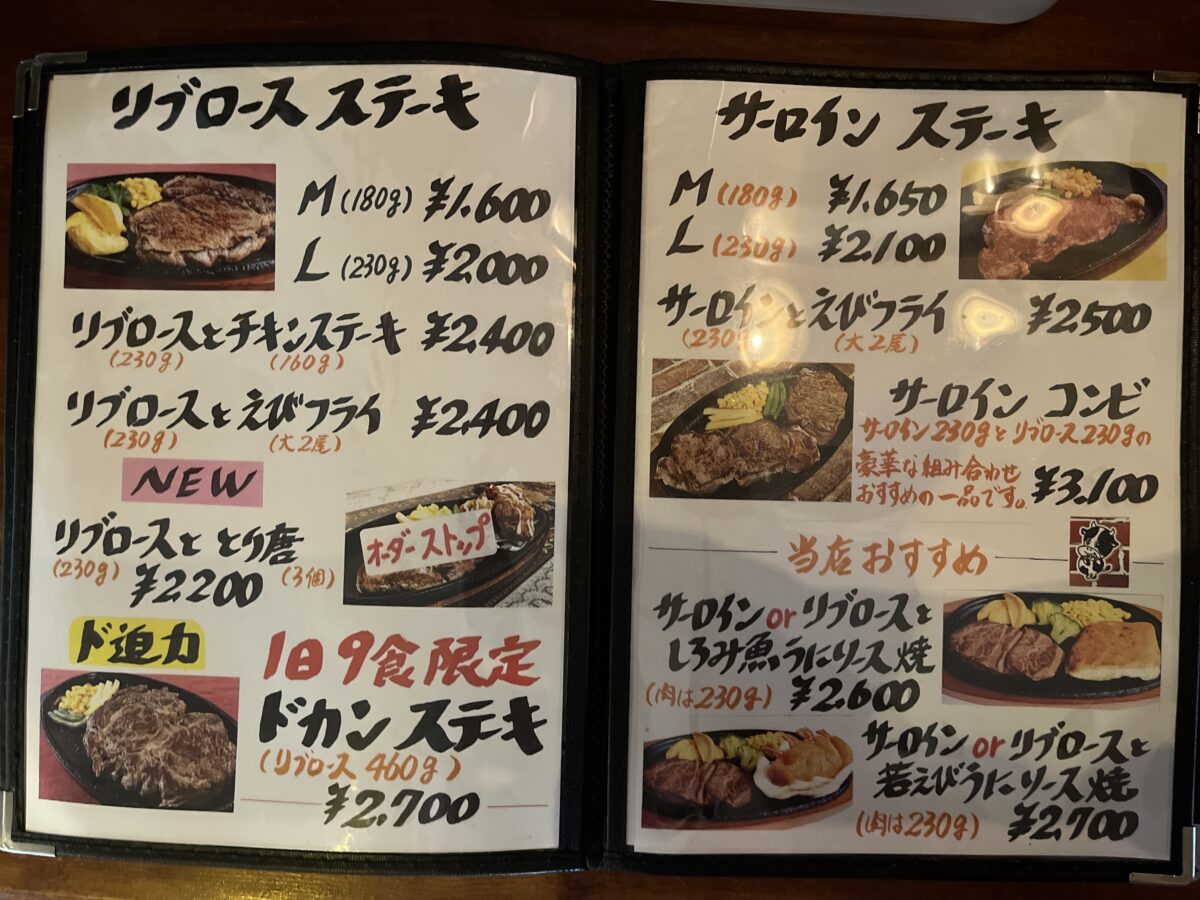 リブロース ステーキ
M (180g) ¥1.600
L (230g) ¥2.000
リブロースとチキンステーキ ¥2.400
(230g) (160g)
リブロースとえびフライ ¥2.400
(230g) (大2尾)
NEW
リブロースと とり唐
(230g) ¥2.200 (3個)
オーダーストップ
ド迫力
1日9食限定
ドカンステーキ
(リブロース 460g)
¥2.700
サーロイン ステーキ
M (180g) ¥1.650
L (230g) ¥2.100
サーロインとえびフライ ¥2.500
(230g) (大2尾)
サーロイン コンビ
サーロイン230gとリブロース230gの
豪華な組み合わせ
おすすめの一品です。 ¥3.100
当店おすすめ
サーロインorリブロースと
しろみ魚うにソース焼
(肉は230g) ¥2.600
サーロインorリブロースと
若えびうにソース焼
(肉は230g) ¥2.700